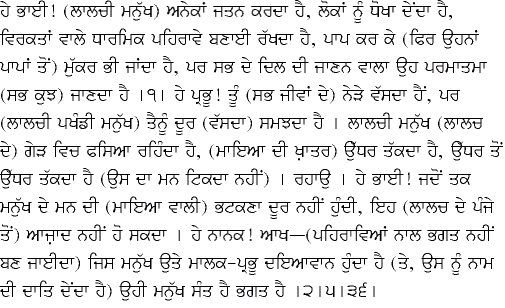 ਹੇ ਭਾਈ! (ਲਾਲਚੀ ਮਨੁੱਖ) ਅਨੇਕਾਂ ਜਤਨ ਕਰਦਾ ਹੈ, ਲੋਕਾਂ ਨੂੰ ਧੋਖਾ ਦੇਂਦਾ ਹੈ,
ਵਿਰਕਤਾਂ ਵਾਲੇ ਧਾਰਮਿਕ ਪਹਿਰਾਵੇ ਬਣਾਈ ਰੱਖਦਾ ਹੈ, ਪਾਪ ਕਰ ਕੇ (ਫਿਰ ਉਹਨਾਂ
ਪਾਪਾਂ ਤੋਂ) ਮੁੱਕਰ ਭੀ ਜਾਂਦਾ ਹੈ, ਪਰ ਸਭ ਦੇ ਦਿਲ ਦੀ ਜਾਣਨ ਵਾਲਾ ਉਹ ਪਰਮਾਤਮਾ
(ਸਭ ਕੁਝ) ਜਾਣਦਾ ਹੈ ।੧। ਹੇ ਪ੍ਰਭੂ! ਤੂੰ (ਸਭ ਜੀਵਾਂ ਦੇ) ਨੇੜੇ ਵੱਸਦਾ ਹੈਂ, ਪਰ
(ਲਾਲਚੀ ਪਖੰਡੀ ਮਨੁੱਖ) ਤੈਨੂੰ ਦੂਰ (ਵੱਸਦਾ) ਸਮਝਦਾ ਹੈ । ਲਾਲਚੀ ਮਨੁੱਖ (ਲਾਲਚ
ਦੇ) ਗੇੜ ਵਿਚ ਫਸਿਆ ਰਹਿੰਦਾ ਹੈ, (ਮਾਇਆ ਦੀ ਖ਼ਾਤਰ) ਉੱਧਰ ਤੱਕਦਾ ਹੈ, ਉੱਧਰ ਤੋਂ
ਉੱਧਰ ਤੱਕਦਾ ਹੈ (ਉਸ ਦਾ ਮਨ ਟਿਕਦਾ ਨਹੀਂ) । ਰਹਾਉ । ਹੇ ਭਾਈ! ਜਦੋਂ ਤਕ
ਮਨੁੱਖ ਦੇ ਮਨ ਦੀ (ਮਾਇਆ ਵਾਲੀ) ਭਟਕਣਾ ਦੂਰ ਨਹੀਂ ਹੁੰਦੀ, ਇਹ (ਲਾਲਚ ਦੇ ਪੰਜੇ
ਤੋਂ) ਆਜ਼ਾਦ ਨਹੀਂ ਹੋ ਸਕਦਾ । ਹੇ ਨਾਨਕ! ਆਖ—(ਪਹਿਰਾਵਿਆਂ ਨਾਲ ਭਗਤ ਨਹੀਂ
ਬਣ ਜਾਈਦਾ) ਜਿਸ ਮਨੁੱਖ ਉਤੇ ਮਾਲਕ-ਪ੍ਰਭੂ ਦਇਆਵਾਨ ਹੁੰਦਾ ਹੈ (ਤੇ, ਉਸ ਨੂੰ ਨਾਮ
ਦੀ ਦਾਤਿ ਦੇਂਦਾ ਹੈ) ਉਹੀ ਮਨੁੱਖ ਸੰਤ ਹੈ ਭਗਤ ਹੈ ।੨।੫।੩੬।